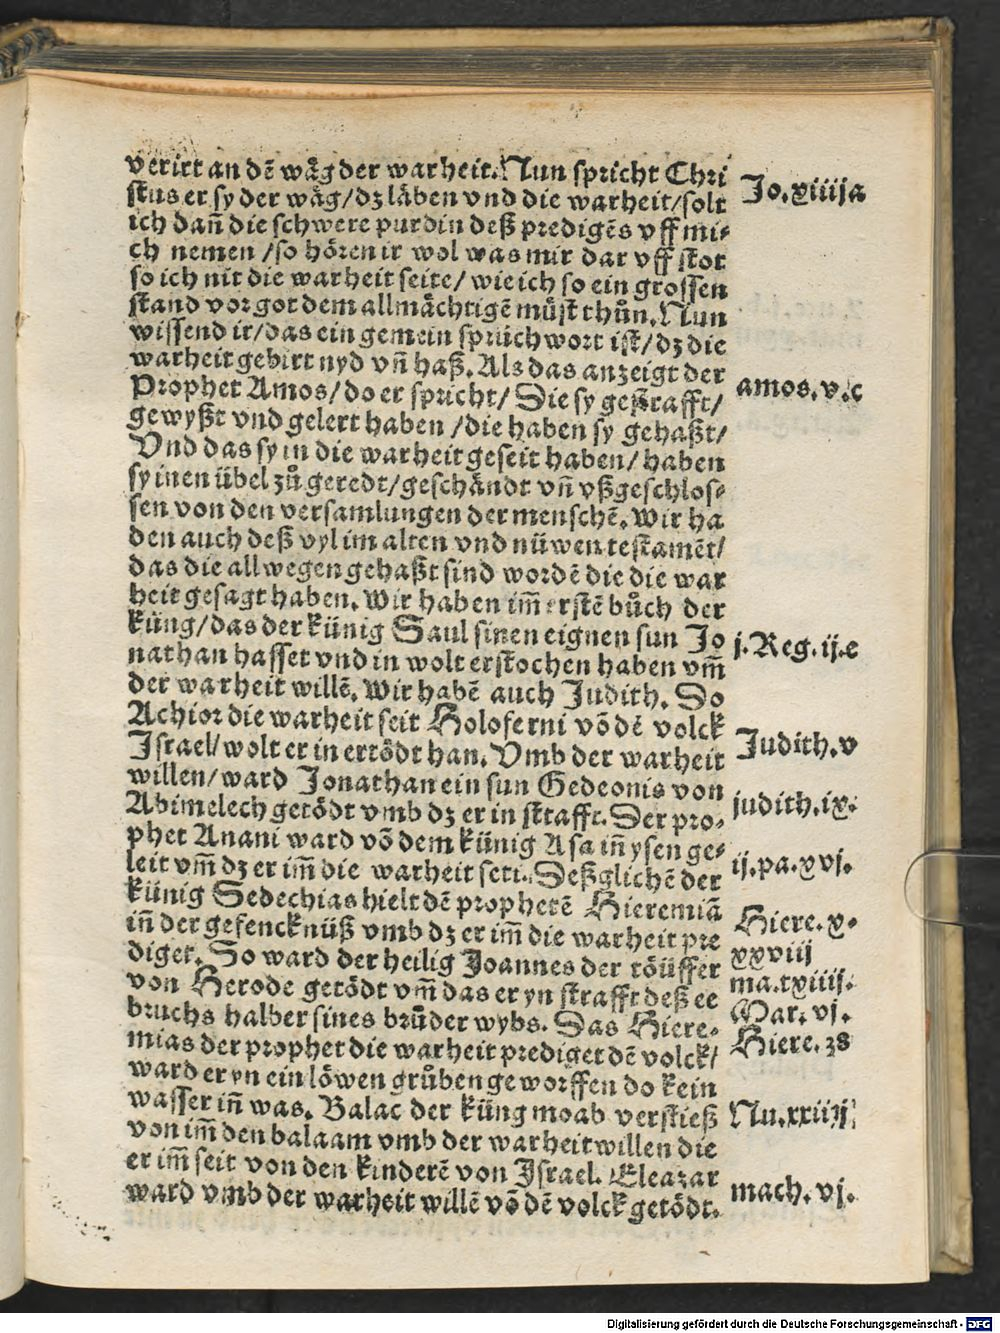 verirt an dē wåg der warheit. Nun spricht Chri
stus er sy der wåg/dz låben vnd die warheit/solt
Jo.xiiij a
ich dañ die schwere purdin deß predigēs vff mi⸗
ch nemen /so hören ir wol was mir dar vff stot
so ich nit die warheit seite/ wie ich so ein grossen
stand vor got dem allmåchtigē mu̇st thůn. Nun
wissend ir/das ein gemein sprüchwort ist/dz die
warheit gebirt nyd vñ haß. Als das anzeigt der
Prophet Amos/do er spricht/ Die sy gestrafft/
amos.v.c
gewyßt vnd gelert haben /die haben sy gehaßt/
Vnd das sy in die warheit geseit haben/ haben
sy inen übel zů geredt/geschåndt vñ vßgeschlos⸗
sen von den versamlungen der menschē. Wir ha
den auch deß vyl im alten vnd nüwen testamēt/
das die allwegen gehaßt sind wordē die die war
heit gesagt haben. Wir haben im̃ erstē bůch der
küng/das der künig Saul sinen eignen sun Jo
j.Reg.ij.e
nathan hasset vnd in wolt erstochen haben vm̃
der warheit willē. Wir habē auch Judith. So
Achior die warheit seit Holoferni vō dē volck
Israel/wolt er in ertödt han. Vmb der warheit
Judith.v
willen/ward Jonathan ein sun Gedeonis von
Abimelech getödt vmb dz er in strafft. Der pro⸗
judith.ix.
phet Anani ward vō dem künig Asa iñ ysen ge⸗
leit vm̃ dz er im̃ die warheit seit. Deßglichē der
ij.pa.xvj.
künig Sedechias hielt dē prophetē Hieremiā
iñ der gefencknüß vmb dz er im̃ die warheit pre
Hiere.x⸗
diget. So ward der heilig Joannes der töüffer
xxviij
von Herode getödt vm̃ das er yn strafft deß ee
ma.txiiij.
bruchs halber sines brůder wybs. Das Hiere⸗
Mar. vj.
mias der prophet die warheit prediget dē volck/
Hiere. 38
ward er yn ein löwen grůben geworffen do kein
wasser iñ was. Balac der küng moab verstieß
Nu.xxiiij
von im̃ den balaam vmb der warheit willen die
er im̃ seit von den kinderē von Israel. Eleazar
ward vmb der warheit willē vō dē volck getödt.
mach. vj.
Digitalisierung gefördert durch die Deutsche Forschungsgemeinschaft - DFG